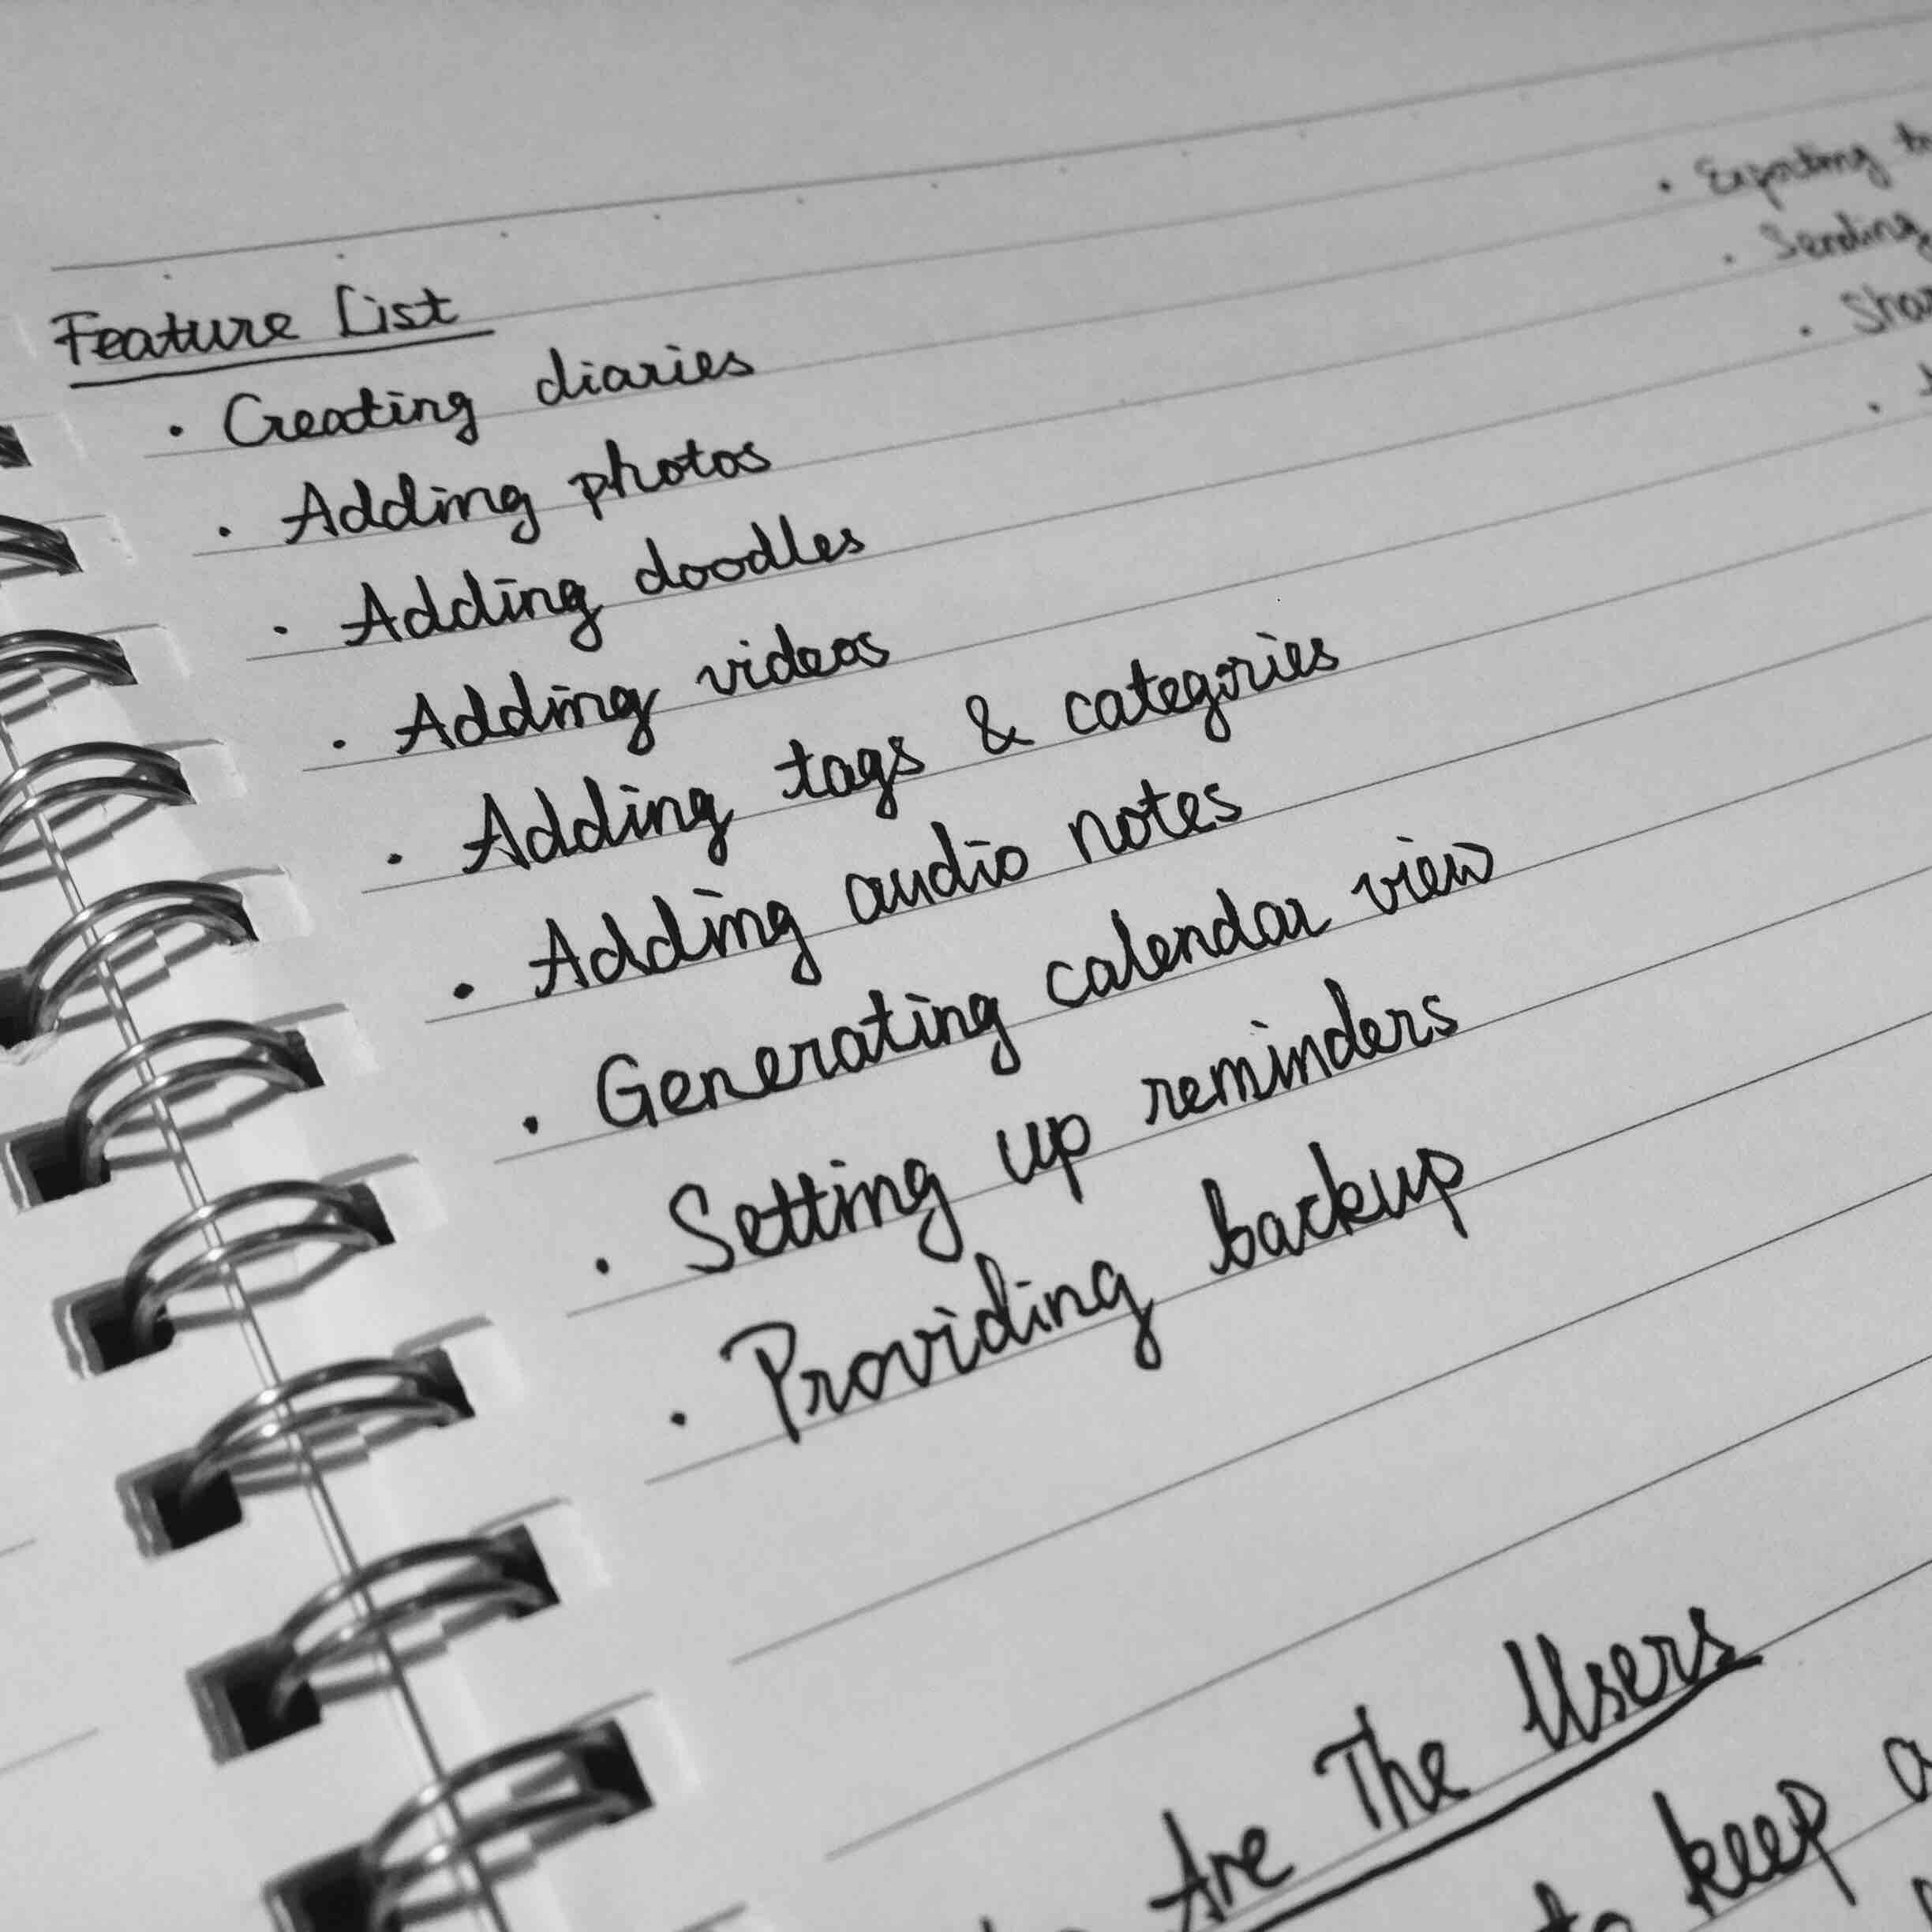 Feature List
· Creating diaries
· Adding photos
· Adding doodles
· Adding videos
· Adding tags & categories
· Adding audio notes
· Generating calendar view
· Setting up reminders
· Providing backup
· Exporting
· Sending
Are The Users
to keep a